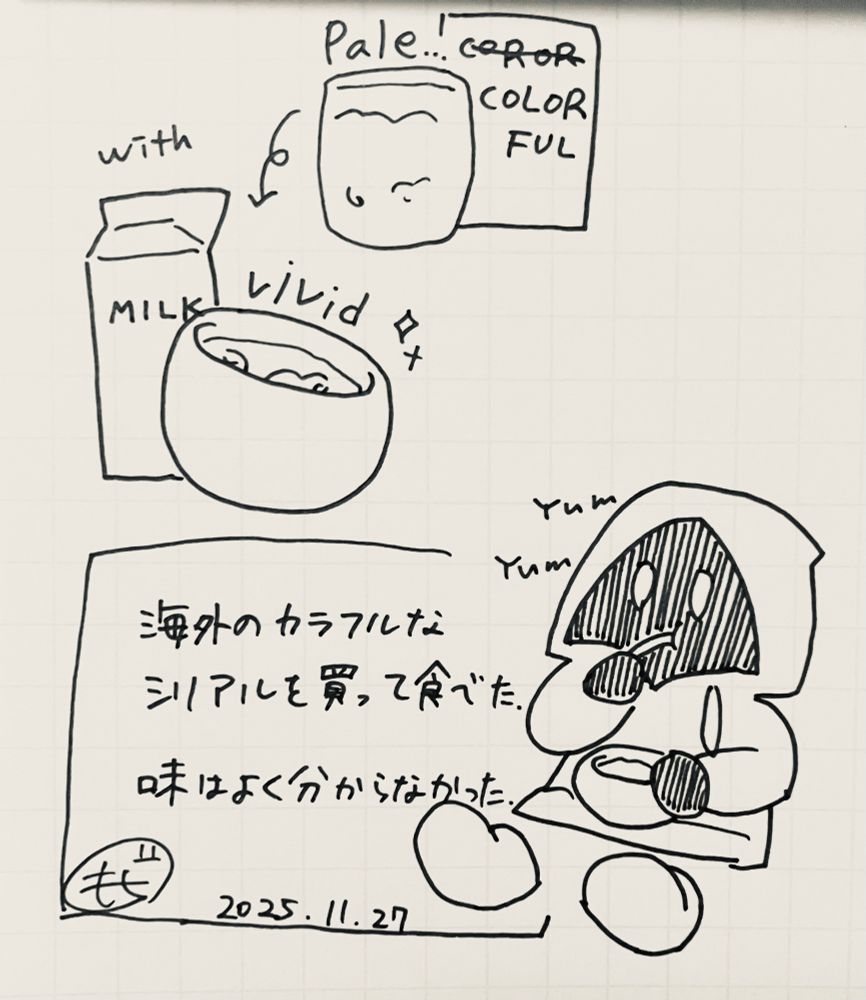 Pale..!
COROR
COLOR
FUL
with
MILK
vivid
Yum
Yum
海外のカラフルな
シリアルを買って食べた.
味はよく分からなかった.
もち"
2025.11.27